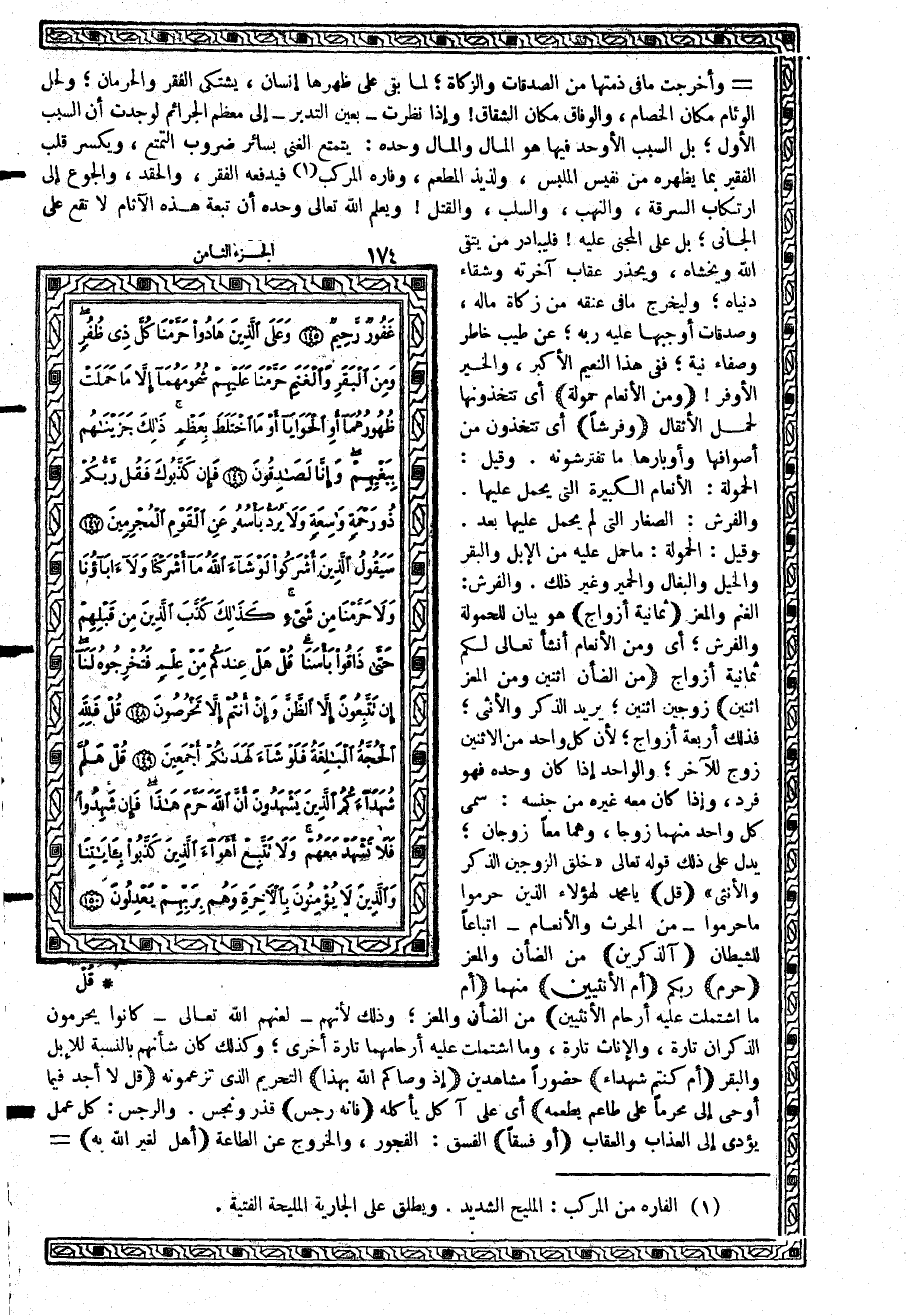 = وأخرجت مافى ذمتها من الصدقات والزكاة ؛ لما بقى على ظهرها إنسان ، يشتكى الفقر والحرمان ؛ ولحل
الوئام مكان الخصام ، والوفاق مكان الشقاق ! وإذا نظرت ــ بعين التدبر ــ إلى معظم الجرائم لوجدت أن السبب
الأول ؛ بل السبب الأوحد فيها هو المال والمال وحده : يتمتع الغنى بسائر ضروب التمتع ، ويكسر قلب
الفقير بما يظهره من نفيس الملبس ، ولذيذ المطعم ، وفاره المركب(١) فيدفعه الفقر ، والحقد ، والجوع إلى
ارتكاب السرقة ، والنهب ، والسلب ، والقتل ! ويعلم الله تعالى وحده أن تبعة هذه الآثام لا تقع على
الجانى ؛ بل على المجنى عليه ! فليبادر من يتقى
الله ويخشاه ، ويحذر عقاب آخرته وشقاء
دنياه ؛ وليخرج مافى عنقه من زكاة ماله ،
وصدقات أوجبها عليه ربه ؛ عن طيب خاطر
وصفاء نية ؛ ففى هذا النعيم الأكبر ، والخير
الأوفر ! (ومن الأنعام حمولة) أى تتخذونها
لحمل الأثقال (وفرشاً) أى تتخذون من
أصوافها وأوبارها ما تفترشونه . وقيل :
الحمولة : الأنعام الكبيرة التى يحمل عليها .
والفرش : الصغار التى لم يحمل عليها بعد .
وقيل : الحمولة : ماحمل عليه من الإبل والبقر
والخيل والبغال والحمير وغير ذلك . والفرش:
الغنم والمعز (ثمانية أزواج) هو بيان للحمولة
والفرش ؛ أى ومن الأنعام أنشأ تعالى لكم
ثمانية أزواج (من الضأن اثنين ومن المعز
اثنين) زوجين اثنين ؛ يريد الذكر والأنثى ؛
فذلك أربعة أزواج ؛ لأن كل واحد من الاثنين
زوج للآخر ؛ والواحد إذا كان وحده فهو
فرد ، وإذا كان معه غيره من جنسه : سمى
كل واحد منهما زوجا ، وهما معاً زوجان ؛
يدل على ذلك قوله تعالى «خلق الزوجين الذكر
والأنثى» (قل) يامحمد لهؤلاء الذين حرموا
ماحرموا ــ من الحرث والأنعام ــ اتباعاً
للشيطان (آلذكرين) من الضأن والمعز
(حرم) ربكم (أم الأنثيين) منهما (أم
ما اشتملت عليه أرحام الأنثيين) من الضأن والمعز ؛ وذلك لأنهم ــ لعنهم الله تعالى ــ كانوا يحرمون
الذكران تارة ، والإناث تارة ، وما اشتملت عليه أرحامهما تارة أخرى ؛ وكذلك كان شأنهم بالنسبة للإبل
والبقر (أم كنتم شهداء) حضوراً مشاهدين (إذ وصاكم الله بهذا) التحريم الذى تزعمونه (قل لا أجد فيما
أوحى إلى محرماً على طاعم يطعمه) أى على آكل يأكله (فانه رجس) قذر ونجس . والرجس : كل عمل
يؤدى إلى العذاب والعقاب (أو فسقاً) الفسق : الفجور ، والخروج عن الطاعة (أهل لغير الله به) =
١٧٤ الجزء الثامن
غَفُورٌ رَّحِيمٌ ١٤٥ وَعَلَى ٱلَّذِينَ هَادُوا۟ حَرَّمْنَا كُلَّ ذِى ظُفُرٍ ۖ
وَمِنَ ٱلْبَقَرِ وَٱلْغَنَمِ حَرَّمْنَا عَلَيْهِمْ شُحُومَهُمَآ إِلَّا مَا حَمَلَتْ
ظُهُورُهُمَآ أَوِ ٱلْحَوَايَآ أَوْ مَا ٱخْتَلَطَ بِعَظْمٍ ۚ ذَٰلِكَ جَزَيْنَٰهُم
بِبَغْيِهِمْ ۖ وَإِنَّا لَصَٰدِقُونَ ١٤٦ فَإِن كَذَّبُوكَ فَقُل رَّبُّكُمْ
ذُو رَحْمَةٍ وَٰسِعَةٍ وَلَا يُرَدُّ بَأْسُهُۥ عَنِ ٱلْقَوْمِ ٱلْمُجْرِمِينَ ١٤٧
سَيَقُولُ ٱلَّذِينَ أَشْرَكُوا۟ لَوْ شَآءَ ٱللَّهُ مَآ أَشْرَكْنَا وَلَآ ءَابَآؤُنَا
وَلَا حَرَّمْنَا مِن شَىْءٍ ۚ كَذَٰلِكَ كَذَّبَ ٱلَّذِينَ مِن قَبْلِهِمْ
حَتَّىٰ ذَاقُوا۟ بَأْسَنَا ۗ قُلْ هَلْ عِندَكُم مِّنْ عِلْمٍ فَتُخْرِجُوهُ لَنَآ ۖ
إِن تَتَّبِعُونَ إِلَّا ٱلظَّنَّ وَإِنْ أَنتُمْ إِلَّا تَخْرُصُونَ ١٤٨ قُلْ فَلِلَّهِ
ٱلْحُجَّةُ ٱلْبَٰلِغَةُ فَلَوْ شَآءَ لَهَدَىٰكُمْ أَجْمَعِينَ ١٤٩ قُلْ هَلُمَّ
شُهَدَآءَكُمُ ٱلَّذِينَ يَشْهَدُونَ أَنَّ ٱللَّهَ حَرَّمَ هَٰذَا ۖ فَإِن شَهِدُوا۟
فَلَا تَشْهَدْ مَعَهُمْ ۚ وَلَا تَتَّبِعْ أَهْوَآءَ ٱلَّذِينَ كَذَّبُوا۟ بِـَٔايَٰتِنَا
وَٱلَّذِينَ لَا يُؤْمِنُونَ بِٱلْـَٔاخِرَةِ وَهُم بِرَبِّهِمْ يَعْدِلُونَ ١٥٠
* قُلْ
(١) الفاره من المركب : المليح الشديد . ويطلق على الجارية المليحة الفتية .